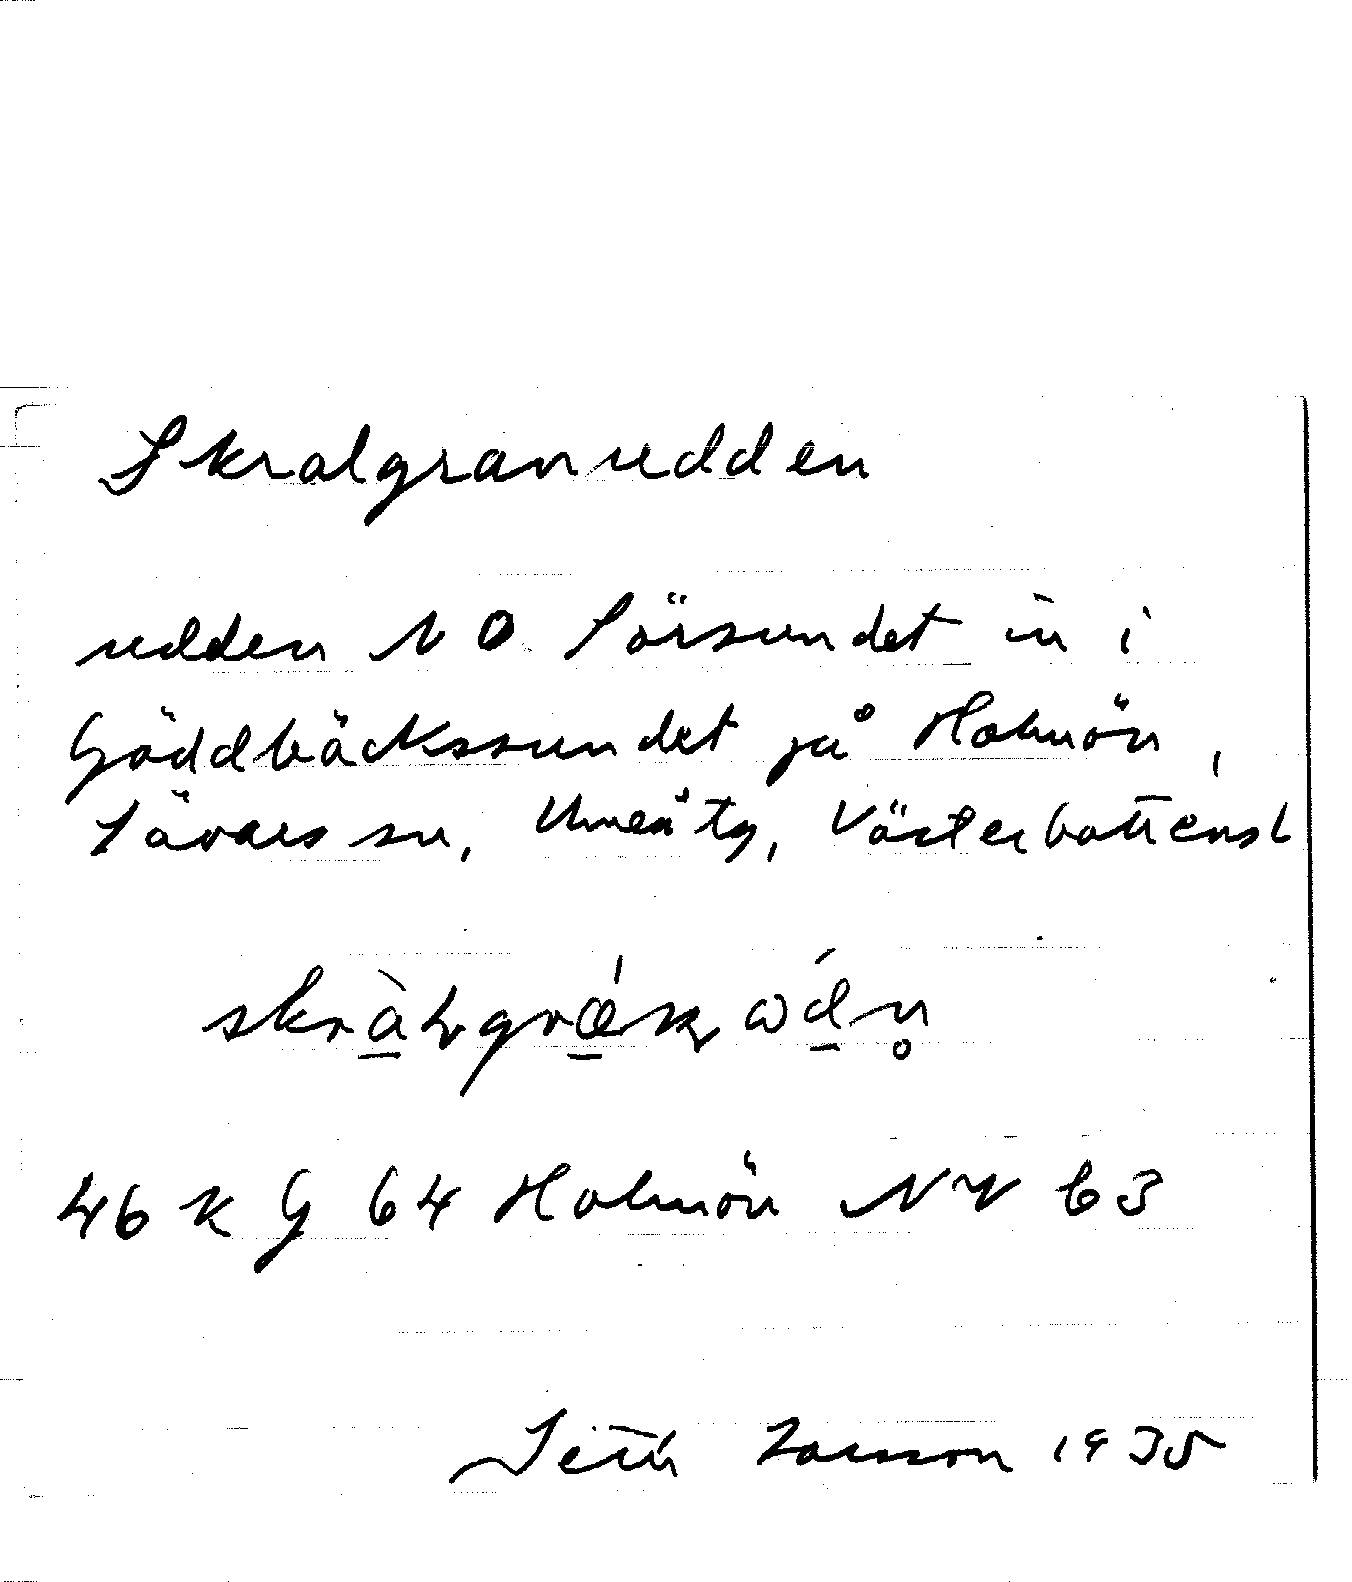 Skralgranudden
udden N O Sörsundet in i
Gäddbäckssundet på Holmön,
Sävars sn, Umeå tg, Västerbottensl
46 K G 64 Holmön NV 63
Larsson 1935